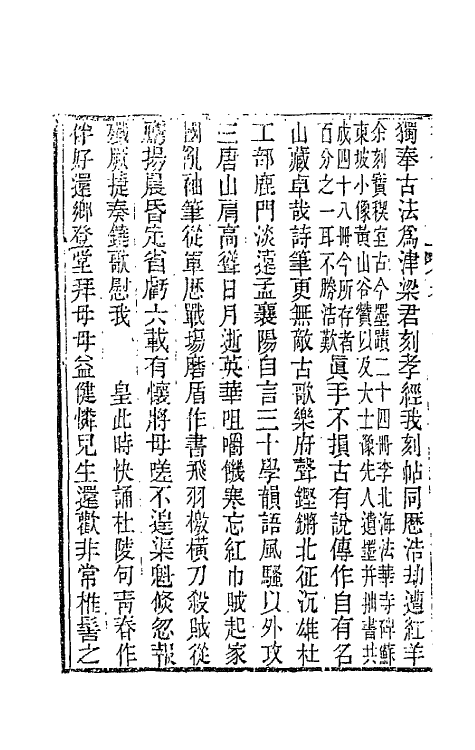 獨奉古法爲津梁君刻孝經我刻帖同歷浩劫遭紅羊
余刻寶稧室古今墨蹟二十四冊李北海法華寺碑蘇
東坡小像黃山谷贊以及大士像先人遺墨并拙書共
成四十八冊今所存者
百分之一耳不勝浩歎
眞手不損古有說傳作自有名
山藏卓哉詩筆更無敵古歌樂府聲鏗鏘北征沉雄杜
工部鹿門淡遠孟襄陽自言三十學韻語風騷以外攻
三唐山肩高聳日月逝英華咀嚼饑寒忘紅巾賊起家
國亂袖筆從軍歷戰場磨盾作書飛羽檄橫刀殺賊從
鷹揚晨昏定省虧六載有懷將母嗟不遑渠魁倐忽報
殲厥捷奏鐃歌慰我　皇此時快誦杜陵句靑春作
伴好還鄉登堂拜母母益健憐兒生還歡非常椎髻之